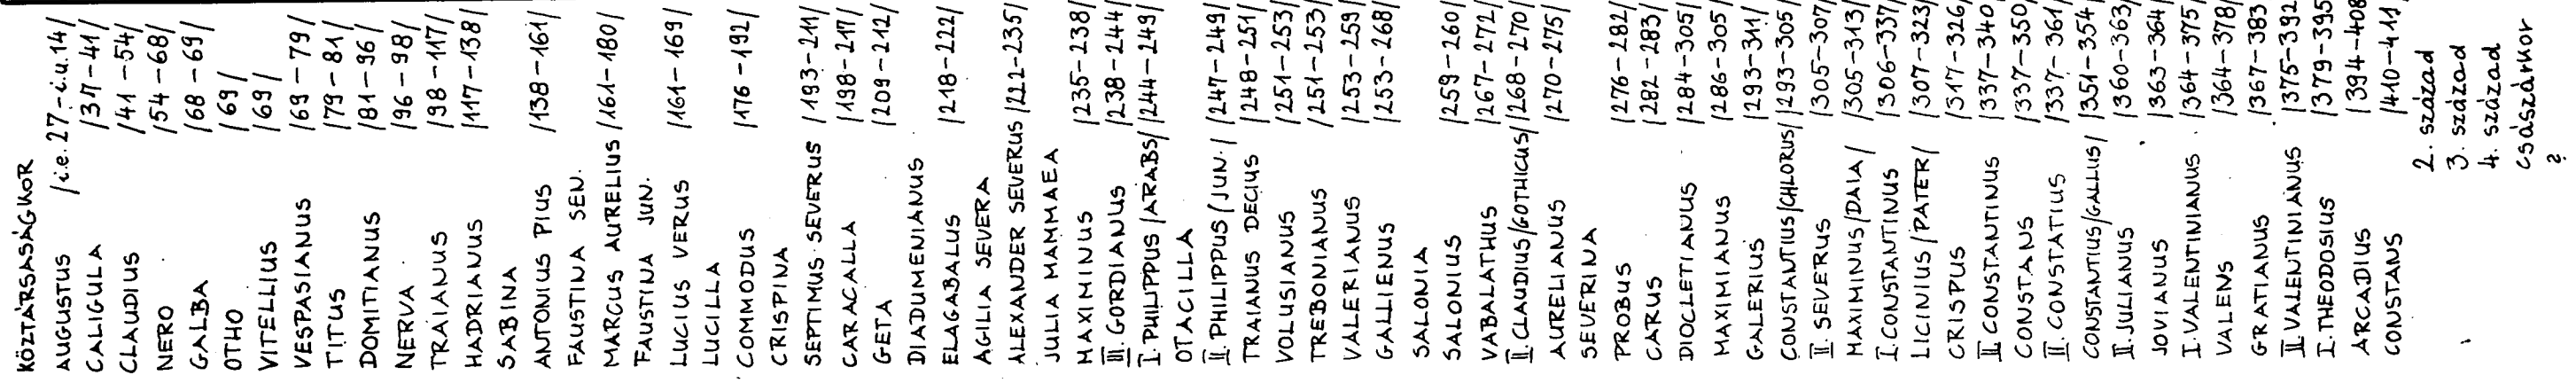 KÖZTÁRSASÁGKOR
AUGUSTUS /i.e. 27-i.u. 14/
CALIGULA /37-41/
CLAUDIUS /41-54/
NERO /54-68/
GALBA /68-69/
OTHO /69/
VITELLIUS /69/
VESPASIANUS /69-79/
TITUS /79-81/
DOMITIANUS /81-96/
NERVA /96-98/
TRAIANUS /98-117/
HADRIANUS /117-138/
SABINA
ANTONIUS PIUS /138-161/
FAUSTINA SEN.
MARCUS AURELIUS /161-180/
FAUSTINA JUN.
LUCIUS VERUS /161-169/
LUCILLA
COMMODUS /176-192/
CRISPINA
SEPTIMUS SEVERUS /193-211/
CARACALLA /198-217/
GETA /209-212/
DIADUMENIANUS
ELAGABALUS /218-222/
AGILIA SEVERA
ALEXANDER SEVERUS /222-235/
JULIA MAMMAEA
MAXIMINUS /235-238/
III. GORDIANUS /238-244/
I. PHILIPPUS /ARABS/ /244-249/
OTACILLA
II. PHILIPPUS /JUN./ /247-249/
TRAIANUS DECIUS /248-251/
VOLUSIANUS /251-253/
TREBONIANUS /251-253/
VALERIANUS /253-259/
GALLIENUS /253-268/
SALONIA
SALONIUS /259-260/
VABALATHUS /267-272/
II. CLAUDIUS /GOTHICUS/ /268-270/
AURELIANUS /270-275/
SEVERINA
PROBUS /276-282/
CARUS /282-283/
DIOCLETIANUS /284-305/
MAXIMIANUS /286-305/
GALERIUS /293-311/
CONSTANTIUS /CHLORUS/ /293-305/
II. SEVERUS /305-307/
MAXIMINUS /DAIA/ /305-313/
I. CONSTANTINUS /306-337/
LICINIUS /PATER/ /307-323/
CRISPUS /317-326/
II. CONSTANTINUS /337-340/
CONSTANS /337-350/
II. CONSTATIUS /337-361/
CONSTANTIUS /GALLUS/ /351-354/
II. JULIANUS /360-363/
JOVIANUS /363-364/
I. VALENTINIANUS /364-375/
VALENS /364-378/
GRATIANUS /367-383
II. VALENTINIANUS /375-392
I. THEODOSIUS /379-395
ARCADIUS /394-408
CONSTANS /410-411/
2. század
3. század
4. század
Császárkor
?